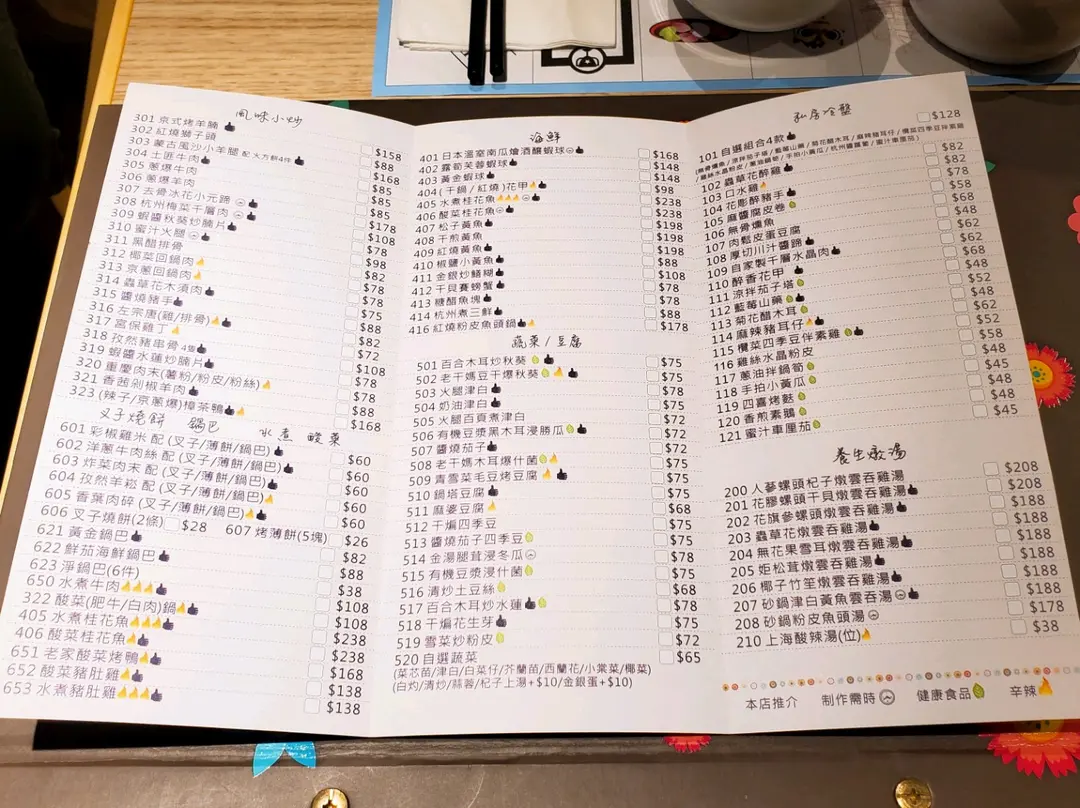 風味小炒
301 京式烤羊腩 $158
302 紅燒獅子頭 $88
303 蒙古風沙小羊腿 配 大方餅4件 $168
304 土匪牛肉 $85
305 蔥爆牛肉 $85
306 蔥爆羊肉 $85
307 去骨冰花小元蹄 $178
308 杭州梅菜千層肉 $108
309 蝦醬秋葵炒腩片 $78
310 蜜汁火腿 $98
311 黑醋排骨 $82
312 椰菜回鍋肉 $78
313 京蔥回鍋肉 $78
314 蟲草花木須肉 $75
315 醬燒豬手 $88
316 左宗唐(雞/排骨) $82
317 宮保雞丁 $72
318 孜然豬串骨 4隻 $108
319 蝦醬水蓮炒腩片 $78
320 重慶肉末(薯粉/粉皮/粉絲) $78
321 香茜剁椒羊肉 $88
323 (辣子/京蔥爆)樟茶鴨 $168
叉子燒餅 鍋巴 水煮 酸菜
601 彩椒雞米 配 (叉子/薄餅/鍋巴) $60
602 洋蔥牛肉絲 配 (叉子/薄餅/鍋巴) $60
603 炸菜肉末 配 (叉子/薄餅/鍋巴) $60
604 孜然羊崧 配 (叉子/薄餅/鍋巴) $60
605 香葉肉碎 (叉子/薄餅/鍋巴) $60
606 叉子燒餅(2條) $28 607 烤薄餅(5塊) $26
621 黃金鍋巴 $82
622 鮮茄海鮮鍋巴 $88
623 淨鍋巴(6件) $38
650 水煮牛肉 $108
322 酸菜(肥牛/白肉)鍋 $108
405 水煮桂花魚 $238
406 酸菜桂花魚 $238
651 老家酸菜烤鴨 $168
652 酸菜豬肚雞 $138
653 水煮豬肚雞 $138
海鮮
401 日本溫室南瓜燴酒釀蝦球 $168
402 露筍芙蓉蝦球 $148
403 黃金蝦球 $148
404 (干鍋/紅燒)花甲 $98
405 水煮桂花魚 $238
406 酸菜桂花魚 $238
407 松子黃魚 $198
408 干煎黃魚 $198
409 紅燒黃魚 $198
410 椒鹽小黃魚 $88
411 金銀炒鱔糊 $108
412 干貝賽螃蟹 $78
413 糖醋魚塊 $78
414 杭州煮三鮮 $88
416 紅燒粉皮魚頭鍋 $178
蔬菜/豆腐
501 百合木耳炒秋葵 $75
502 老干媽豆干爆秋葵 $75
503 火腿津白 $78
504 奶油津白 $75
505 火腿百頁煮津白 $72
506 有機豆漿黑木耳浸勝瓜 $72
507 醬燒茄子 $75
508 老干媽木耳爆什菌 $75
509 青雪菜毛豆烤豆腐 $75
510 鍋塔豆腐 $75
511 麻婆豆腐 $68
512 干煸四季豆 $75
513 醬燒茄子四季豆 $75
514 金湯腿茸浸冬瓜 $78
515 有機豆漿浸什菌 $75
516 清炒土豆絲 $68
517 百合木耳炒水蓮 $78
518 干煸花生芽 $75
519 雪菜炒粉皮 $72
520 自選蔬菜 $65
(菜芯苗/津白/白菜仔/芥蘭苗/西蘭花/小棠菜/椰菜)
(白灼/清炒/蒜蓉/杞子上湯+$10/金銀蛋+$10)
私房冷盤
101 自選組合4款 $128
(無骨燻魚/涼拌茄子塔/藍莓山藥/菊花醋木耳/麻辣豬耳仔/欖菜四季豆伴素雞
/雞絲水晶粉皮/蔥油鍋筍/手拍小黃瓜/杭州醬蘿蔔/蜜汁車厘茄)
102 蟲草花醉雞 $82
103 口水雞 $82
104 花彫醉豬手 $78
105 麻醬腐皮卷 $58
106 無骨燻魚 $68
107 肉鬆皮蛋豆腐 $48
108 厚切川汁醬蹄 $62
109 自家製千層水晶肉 $62
110 醉香花甲 $68
111 涼拌茄子塔 $48
112 藍莓山藥 $52
113 菊花醋木耳 $48
114 麻辣豬耳仔 $62
115 欖菜四季豆伴素雞 $52
116 雞絲水晶粉皮 $58
117 蔥油拌鍋筍 $48
118 手拍小黃瓜 $45
119 四喜烤麩 $48
120 香煎素鵝 $48
121 蜜汁車厘茄 $45
養生燉湯
200 人蔘螺頭杞子燉雲吞雞湯 $208
201 花膠螺頭干貝燉雲吞雞湯 $208
202 花旗參螺頭燉雲吞雞湯 $188
203 蟲草花燉雲吞雞湯 $188
204 無花果雪耳燉雲吞雞湯 $188
205 姫松茸燉雲吞雞湯 $188
206 椰子竹笙燉雲吞雞湯 $188
207 砂鍋津白黃魚雲吞雞湯 $188
208 砂鍋粉皮魚頭湯 $178
210 上海酸辣湯(位) $38
本店推介 制作需時 健康食品 辛辣